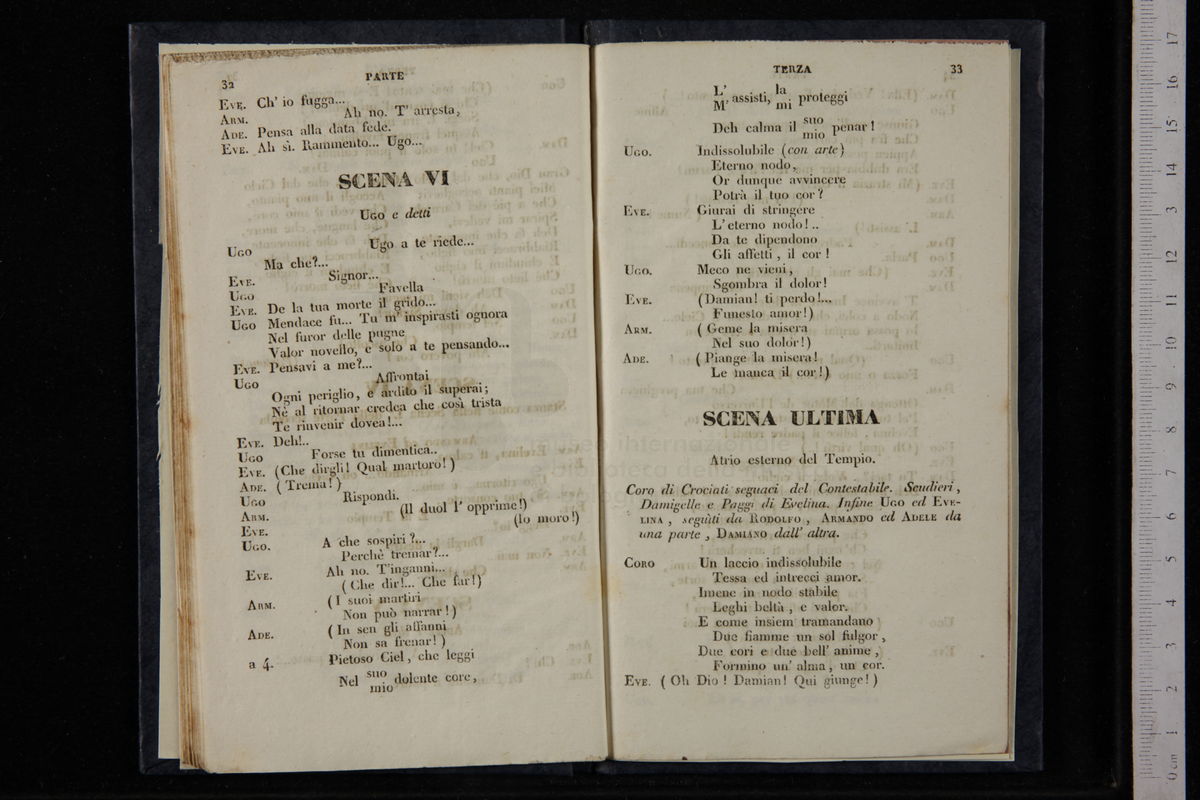 32
PARTE
EVE. Ch' io fugga...
ARM. Ah no. T' arresta,
ADE. Pensa alla data fede.
EVE. Ah sì. Rammento... Ugo...
SCENA VI
UGO e detti
UGO Ugo a te riede...
Ma che?...
EVE. Signor...
UGO Favella
EVE. De la tua morte il grido...
UGO Mendace fu... Tu m' inspirasti ognora
Nel furor delle pugne
Valor novello, e solo a te pensando...
EVE. Pensavi a me?...
UGO Affrontai
Ogni periglio, e ardito il superai;
Nè al ritornar credea che così trista
Te rinvenir dovea!...
EVE. Deh!..
UGO Forse tu dimentica..
EVE. (Che dirgli! Qual martoro!)
ADE. (Trema!)
UGO Rispondi.
ARM. (Il duol l' opprime!)
EVE. (Io moro!)
UGO. A che sospiri?...
Perchè tremar?...
EVE. Ah no. T'inganni...
(Che dir!... Che far!)
ARM. (I suoi martiri
Non può narrar!)
ADE. (In sen gli affanni
Non sa frenar!)
a 4. Pietoso Ciel, che leggi
Nel suo mio dolente core,
TERZA
33
L' M' assisti, la mi proteggi
Deh calma il suo mio penar!
UGO. Indissolubile (con arte)
Eterno nodo,
Or dunque avvincere
Potrà il tuo cor?
EVE. Giurai di stringere
L' eterno nodo!..
Da te dipendono
Gli affetti, il cor!
UGO. Meco ne vieni,
Sgombra il dolor!
EVE. (Damian! ti perdo!...
Funesto amor!)
ARM. (Geme la misera
Nel suo dolor!)
ADE. (Piange la misera!
Le manca il cor!)
SCENA ULTIMA
Atrio esterno del Tempio.
Coro di Crociati seguaci del Contestabile. Scudieri,
Damigelle e Paggi di Evelina. Infine UGO ed EVE-
LINA, seguiti da RODOLFO, ARMANDO ed ADELE da
una parte, DAMIANO dall' altra.
CORO Un laccio indissolubile
Tessa ed intrecci amor.
Imene in nodo stabile
Leghi beltà, e valor.
E come insiem tramandano
Due fiamme un sol fulgor,
Due cori e due bell' anime,
Formino un' alma, un cor.
EVE. (Oh Dio! Damian! Qui giunge!)
0 cm 1 2 3 4 5 6 7 8 9 10 11 12 13 14 15 16 17